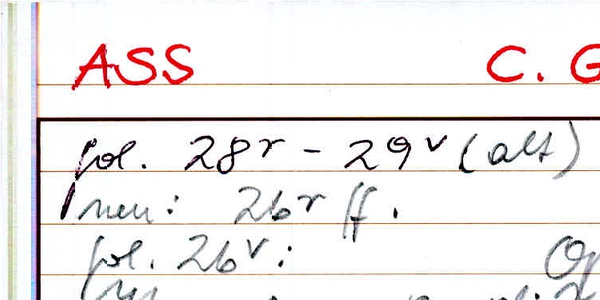 ASS C. G
fol. 28r - 29v (alt)
neu: 26r ff.
fol. 26v: